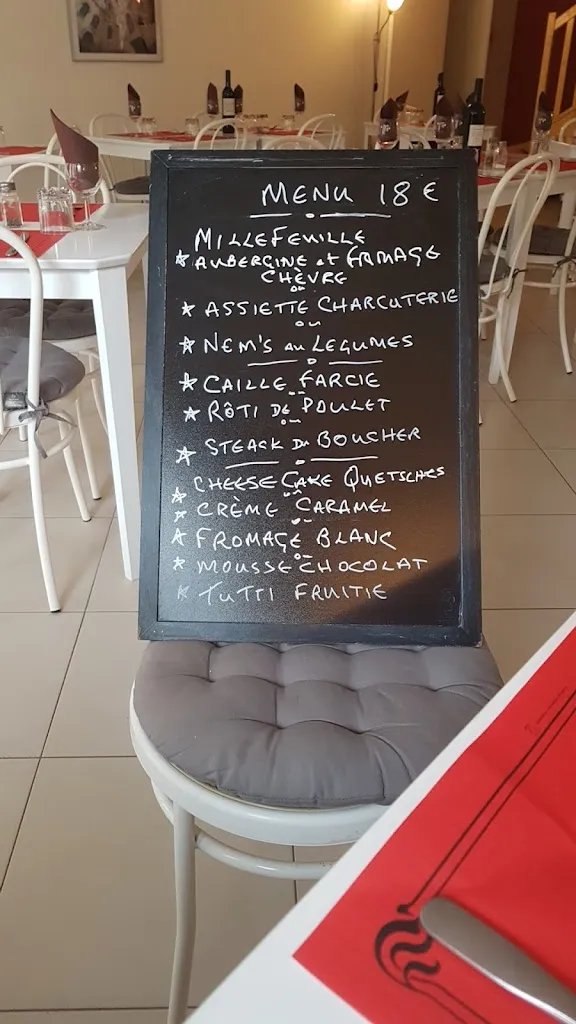 MENU 18 €
MILLEFEUILLE
* AUBERGINE et FROMAGE
CHÈVRE
ou
* ASSIETTE CHARCUTERIE
ou
* NEM'S au LEGUMES
* CAILLE FARCIE
ou
* RÔTI DE POULET
ou
* STEACK Du BOUCHER
* CHEESE CAKE QUETSCHES
ou
* CRÈME CARAMEL
ou
* FROMAGE BLANC
ou
* MOUSSE CHOCOLAT
* TUTTI FRUITIE